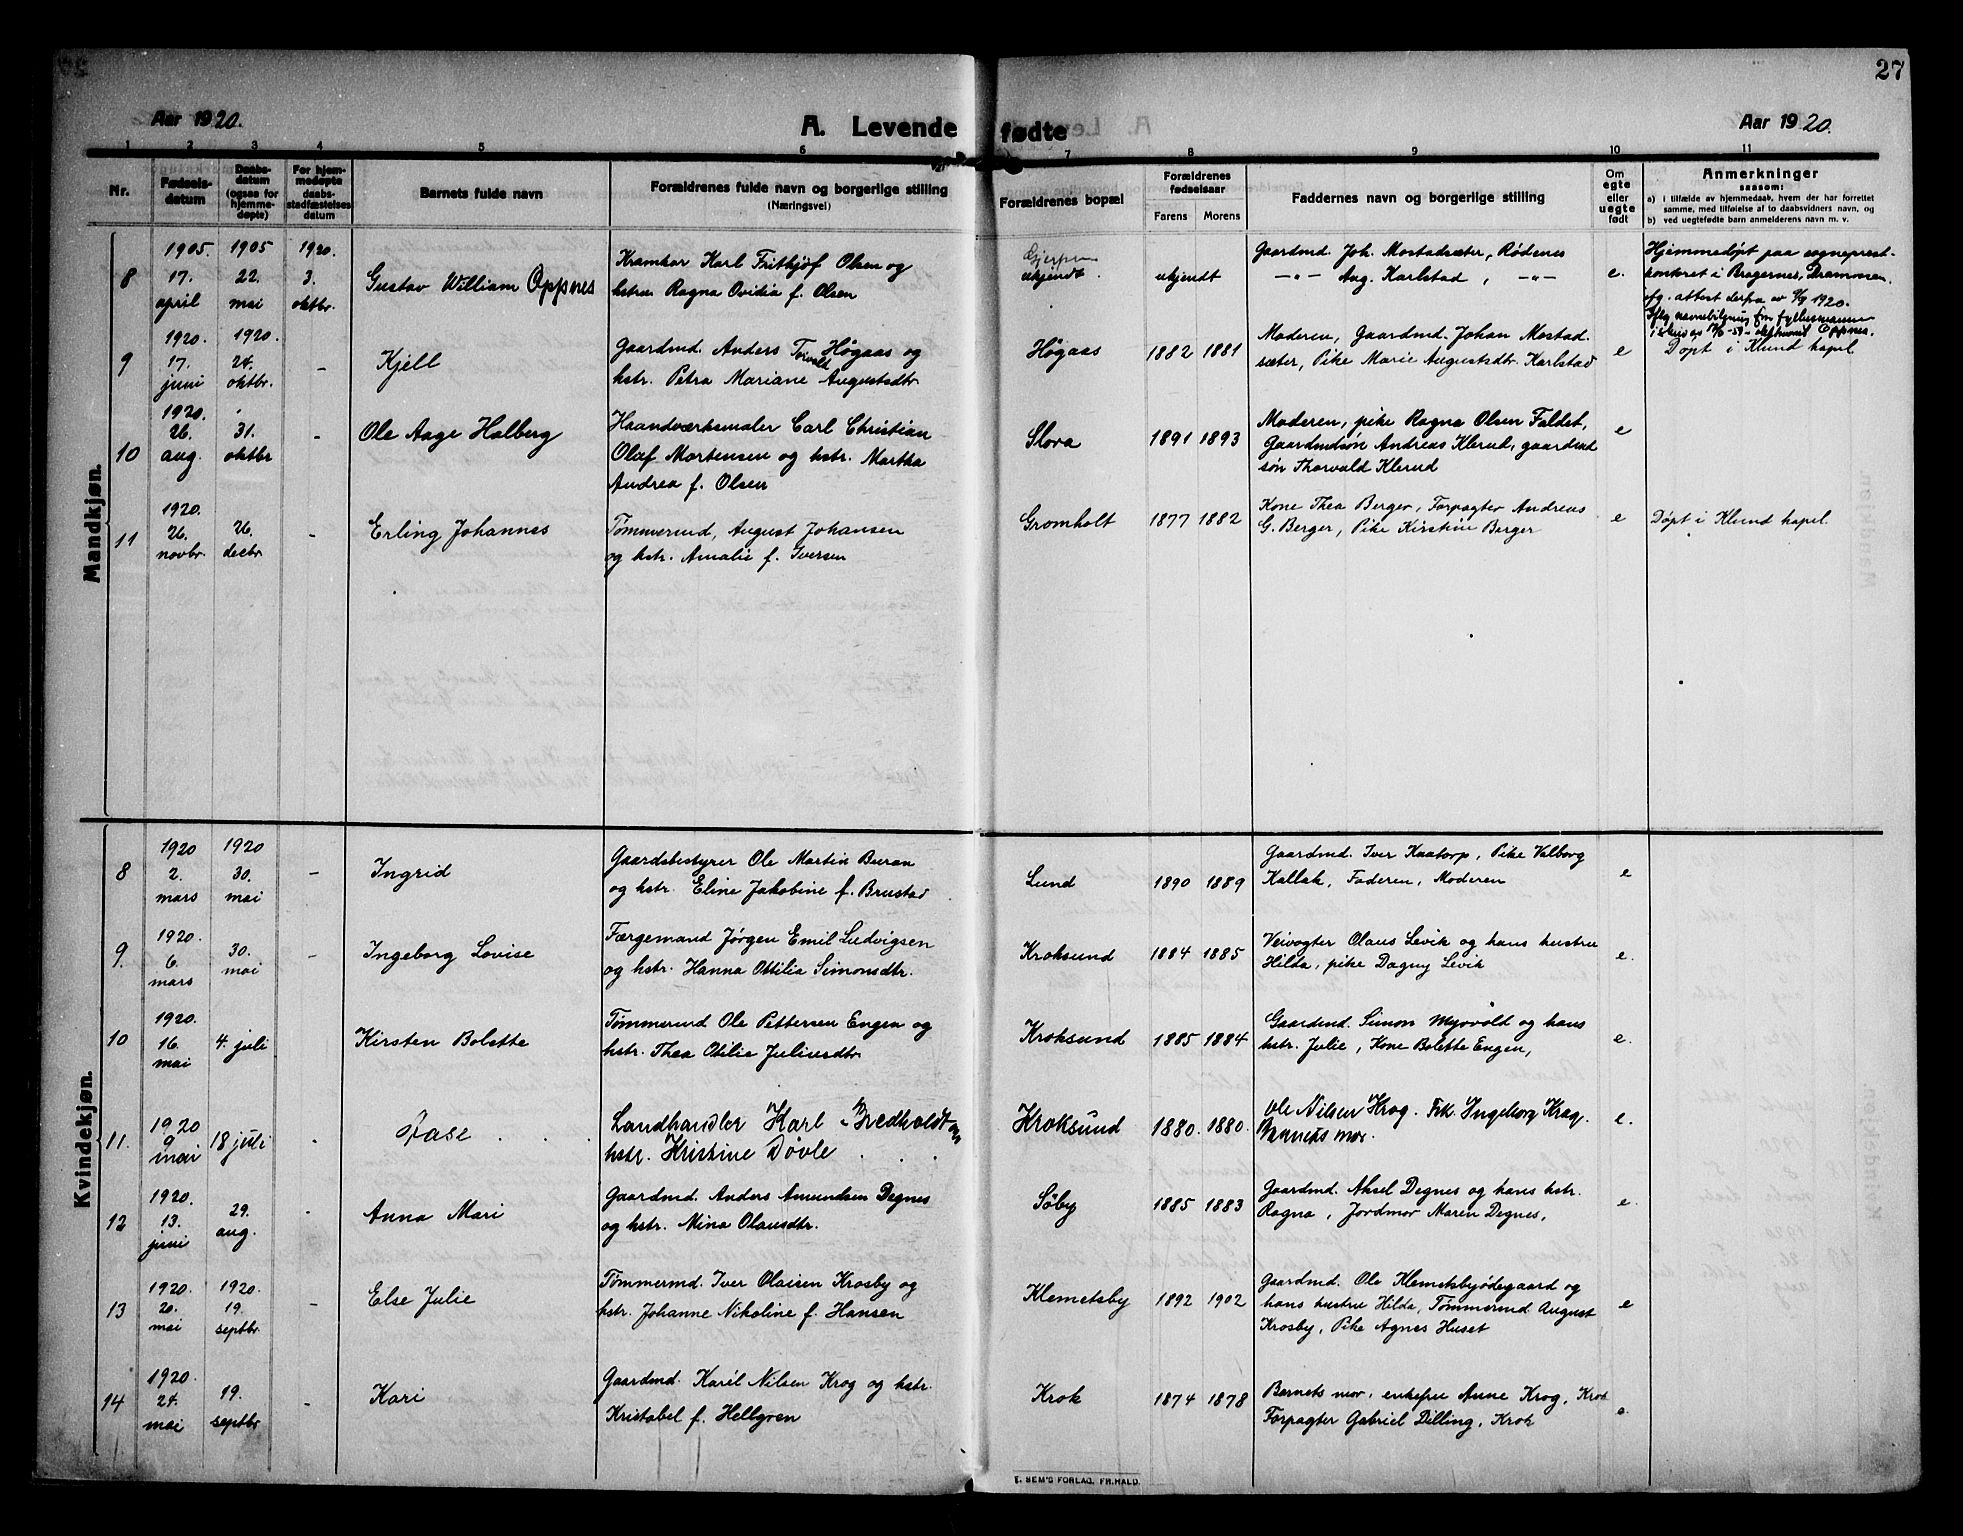 27
Aar 1920.
A. Levende fødte
Aar 1920.
1 2 3 4 5 6 7 8 9 10 11
Nr.
Fødsels-
datum
Daabs-
datum
(ogsaa for
hjemme-
døpte)
For hjem-
medøpte
daabs-
stadfæstelses
datum
Barnets fulde navn
Forældrenes fulde navn og borgerlige stilling
(Næringsvei)
Forældrenes bopæl
Forældrenes
fødselsaar
Farens Morens
Faddernes navn og borgerlige stilling
Om
egte
eller
uegte
født
Anmerkninger
saasom:
a) i tilfælde av hjemmedaab, hvem der har forrettet
samme, med tilføielse af to daabsvidners navn, og
b) ved uegtefødte barn anmelderens navn m. v.
Mandkjøn.
8
1905
17.
april
1905
22.
mai
1920.
3.
oktbr.
Gustav William Oppnes
Kramkar Karl Frithjof Olsen og
hstru Ragna Ovidia f. Olsen
Gjerpen
ukjendt.
ukjendt
Gaardmd. Joh. Mostadsæter, Rødenes
—"— Aug. Karlstad, —"—
e.
Hjemmedøpt paa sogneprest-
kontoret i Bragernes, Drammen
ifg. attest derfra av 9/9 1920.
9
1920.
17.
juni
1920.
24.
oktbr.
-
Kjell
Gaardmd. Anders Torvald Høgaas og
hstr. Petra Mariane Augustsdtr.
Høgaas
1882 1881
Moderen, Gaardmd. Johan Mostad.
sæter, Pike Marie Augustsdtr. Karlstad
e
Døpt i Klund kapel
10
1920.
26.
aug.
31.
oktbr
-
Ole Aage Halberg
Haandværksmaler Carl Christian
Olaf Mortensen og hstr. Martha
Andrea f. Olsen
Slora
1891 1893
Moderen, pike Ragna Olsen Faldet,
Gaardmdsøn Andreas Klerud, gaardmd
søn Thorvald Klerud
e
11
1920.
26.
novbr.
26.
decbr.
-
Erling Johannes
Tømmermd, August Johansen
og hstr. Amalie f. Iversen
Gromholt
1877 1882
Kone Thea Berger, Forpagter Andreas
G. Berger, Pike Kirstine Berger
e
Døpt i Klund kapel.
Kvindekjøn.
8
1920
2.
mars
1920
30.
mai
-
Ingrid
Gaardsbestyrer Ole Martin Buran
og hstr. Eline Jakobine f. Brustad
Lund
1890 1889
Gaardmd. Iver Kaatorp, Pike Valborg
Kallak, Faderen, Moderen
e
9.
1920.
6.
mars
30.
mai
-
Ingeborg Lovise
Færgemand Jørgen Emil Ludvigsen
og hstr. Hanna Ottilia Simonsdtr.
Kroksund
1884 1885
Veivogter Olaus Levik og hans hustru
Hilda, pike Dagny Levik
e.
10
1920.
16.
mai
4. juli
Kirsten Bolette
Tømmermd Ole Pettersen Engen og
hstr. Thea Otilie Juliusdtr.
Kroksund
1885 1884
Gaardmd. Simon Myrvold og hans
hstr. Julie, Kone Bolette Engen,
e.
11.
1920
9
mai
18 juli
-
Aase
Landhandler Karl Bredholdt og
hstr. Kristine Døvle
Kroksund
1880. 1880.
Ole Nilsen Krog. Frk. Ingeborg Krog.
Barnets mor.
e.
12
1920.
13.
juni
29.
aug.
-
Anna Mari
Gaardmd. Anders Amundsen Degnes
og hstr. Mina Olausdtr.
Søby
1885 1883
Gaardmd. Aksel Degnes og hans hstr.
Ragna, Jordmor Maren Degnes,
e.
13
1920.
20.
mai
1920.
19.
septbr.
-
Else Julie
Tømmermd. Iver Olaisen Krosby og
hstr. Johanne Nikoline f. Hansen
Klemetsby
1892 1902
Gaardmd. Ole Klemetsbyødegaard og
hans hustru Hilda, Tømmermd August
Krosby, Pike Agnes Huset
e
14
1920.
24.
mai
19.
septbr
-
Kari
Gaardmd. Karél Nilsen Krog og hstr.
Kristabel f. Hellgren
Krok
1874 1878
Barnets mor, enkefru Anne Krog, Krok
Forpagter Gabriel Dilling, Krok
e.
E. SEM'S FORLAG, FR.HALD.